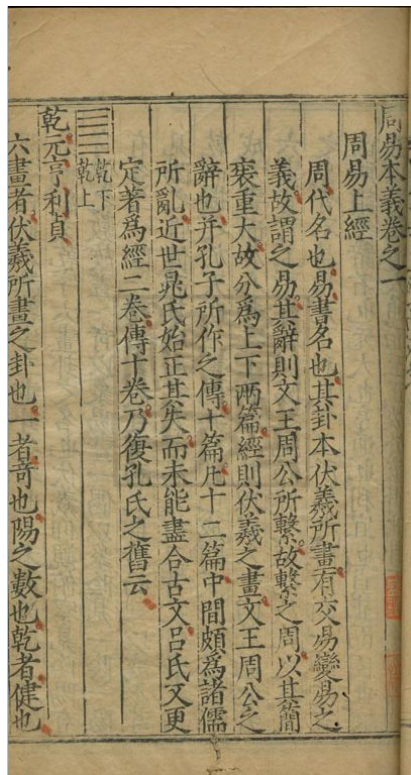 周易本義卷之一
周易上經
周代名也易書名也其卦本伏羲所畫有交易變易之
義故謂之易其辭則文王周公所繫故繫之周以其簡
袠重大故分爲上下兩篇經則伏羲之畫文王周公之
辭也并孔子所作之傳十篇凡十二篇中間頗爲諸儒
所亂近世晁氏始正其失而未能盡合古文呂氏又更
定著爲經二卷傳十卷乃復孔氏之舊云
乾下
乾上
乾元亨利貞
六畫者伏羲所畫之卦也一者竒也陽之數也乾者健也